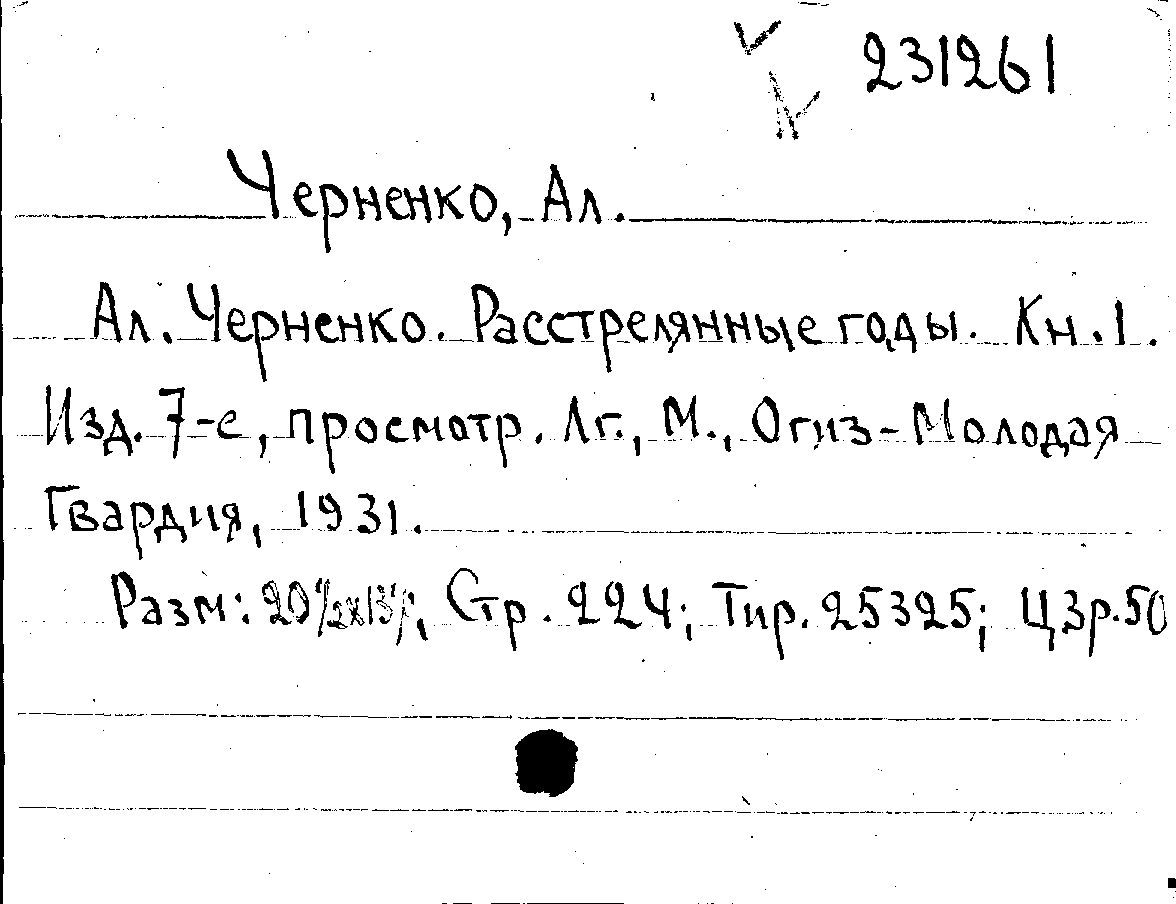 231261
Черненко, Ал.
Ал. Черненко. Расстрелянные годы. Кн. 1.
Изд. 7-е, просмотр. Лг., М., Огиз-Молодая
Гвардия, 1931.
Разм: Стр. 224; Тир. 25325; Ц3р.50